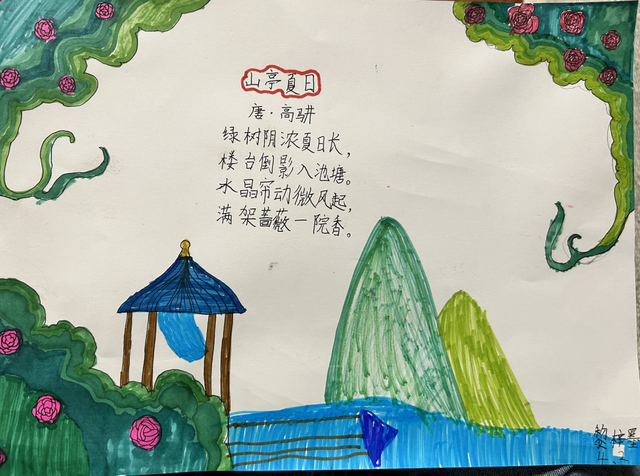 山亭夏日
唐·高骈
绿树阴浓夏日长，
楼台倒影入池塘。
水晶帘动微风起，
满架蔷薇一院香。